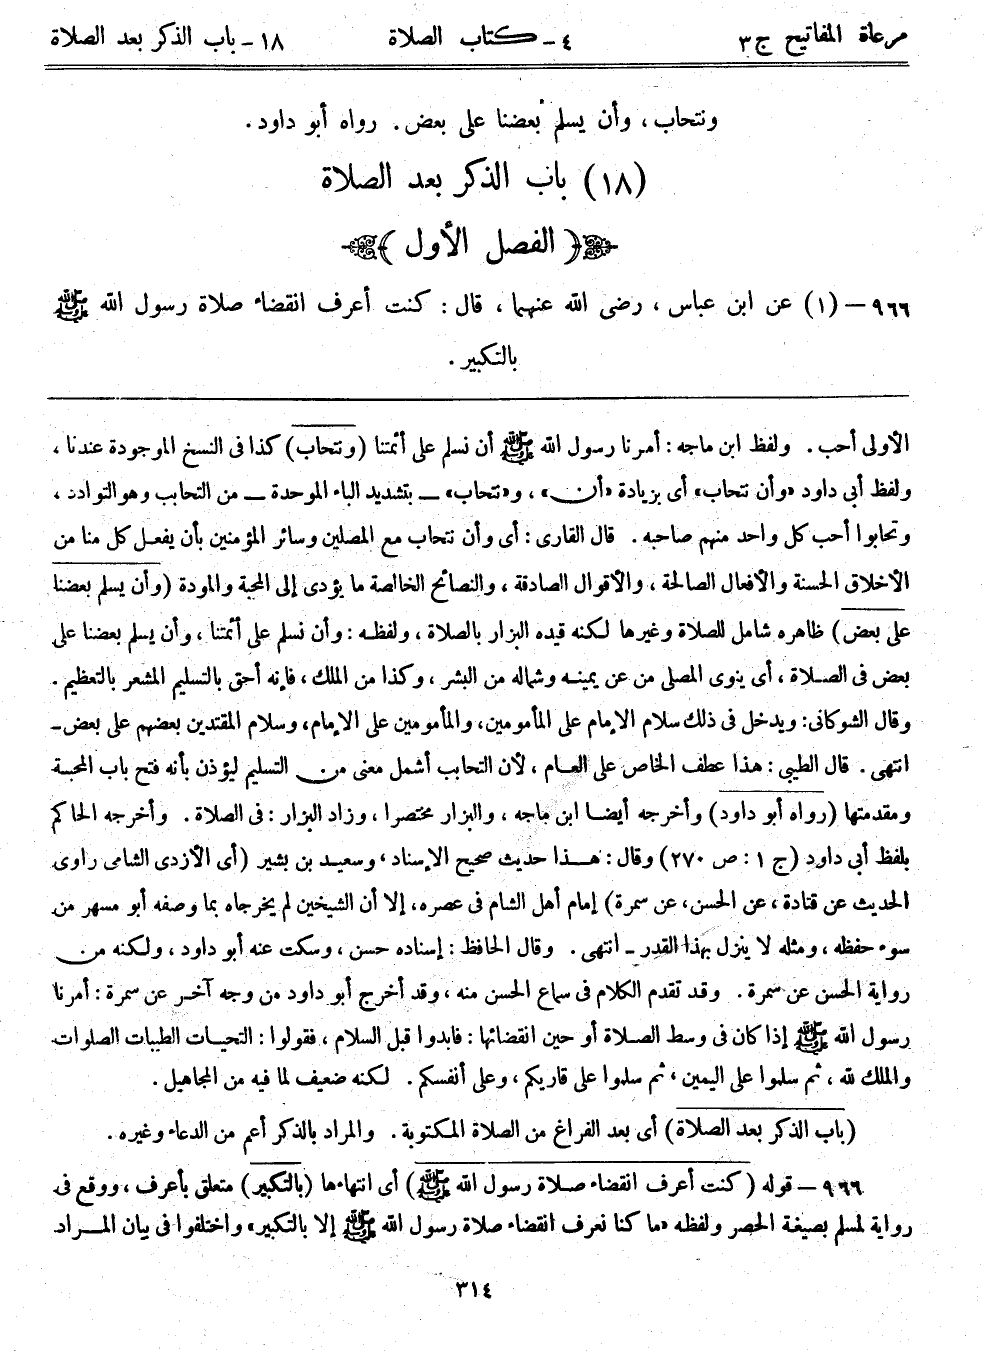 مرعاة المفاتيح ج ٣ ٤ - كتاب الصلاة ١٨ - باب الذكر بعد الصلاة
ونتحاب ، وأن يسلم بعضنا على بعض . رواه أبو داود .
(١٨) باب الذكر بعد الصلاة
﴿ الفصل الأول ﴾
٩٦٦ – (١) عن ابن عباس ، رضى الله عنهما ، قال : كنت أعرف انقضاء صلاة رسول الله ﷺ
بالتكبير .
الأولى أحب . ولفظ ابن ماجه : أمرنا رسول الله ﷺ أن نسلم على أئمتنا (ونتحاب) كذا فى النسخ الموجودة عندنا ،
ولفظ أبى داود «وأن نتحاب» أى بزيادة «أن» ، و«نتحاب» – بتشديد الباء الموحدة – من التحابب وهو التوادد ،
وتحابوا أحب كل واحد منهم صاحبه . قال القارى : أى وأن نتحاب مع المصلين وسائر المؤمنين بأن يفعل كل منا من
الأخلاق الحسنة والأفعال الصالحة ، والأقوال الصادقة ، والنصائح الخالصة ما يؤدى إلى المحبة والمودة (وأن يسلم بعضنا
على بعض) ظاهره شامل للصلاة وغيرها لكنه قيده البزار بالصلاة ، ولفظه : وأن نسلم على أئمتنا ، وأن يسلم بعضنا على
بعض فى الصلاة ، أى ينوى المصلى من عن يمينه وشماله من البشر ، وكذا من الملك ، فإنه أحق بالتسليم المشعر بالتعظيم .
وقال الشوكانى : ويدخل فى ذلك سلام الإمام على المأمومين، والمأمومين على الإمام، وسلام المقتدين بعضهم على بعض –
انتهى . قال الطيبى : هذا عطف الخاص على العام ، لأن التحابب أشمل معنى من التسليم ليؤذن بأنه فتح باب المحبة
ومقدمتها (رواه أبو داود) وأخرجه أيضا ابن ماجه ، والبزار مختصرا ، وزاد البزار : فى الصلاة . وأخرجه الحاكم
بلفظ أبى داود (ج ١ : ص ٢٧٠) وقال : هذا حديث صحيح الإسناد ، وسعيد بن بشير (أى الأزدى الشامى راوى
الحديث عن قتادة ، عن الحسن، عن سمرة) إمام أهل الشام فى عصره، إلا أن الشيخين لم يخرجاه بما وصفه أبو مسهر من
سوء حفظه ، ومثله لا ينزل بهذا القدر – انتهى . وقال الحافظ : إسناده حسن ، وسكت عنه أبو داود ، ولكنه من
رواية الحسن عن سمرة . وقد تقدم الكلام فى سماع الحسن منه ، وقد أخرج أبو داود من وجه آخر عن سمرة : أمرنا
رسول الله ﷺ إذا كان فى وسط الصلاة أو حين انقضائها : فابدوا قبل السلام ، فقولوا : التحيات الطيبات الصلوات
والملك لله ، ثم سلموا على اليمين ، ثم سلموا على قاريكم ، وعلى أنفسكم . لكنه ضعيف لما فيه من المجاهيل .
(باب الذكر بعد الصلاة) أى بعد الفراغ من الصلاة المكتوبة . والمراد بالذكر أعم من الدعاء وغيره .
٩٦٦ – قوله (كنت أعرف انقضاء صلاة رسول الله ﷺ) أى انتهاءها (بالتكبير) متعلق بأعرف ، ووقع فى
رواية لمسلم بصيغة الحصر ولفظه «ما كنا نعرف انقضاء صلاة رسول الله ﷺ إلا بالتكبير» واختلفوا فى بيان المراد
٣١٤